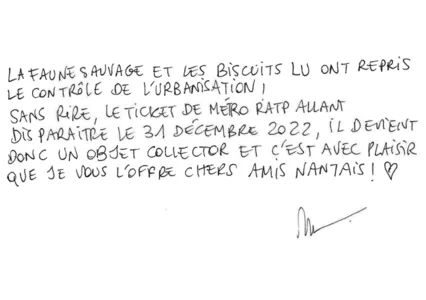 LA FAUNE SAUVAGE ET LES BISCUITS LU ONT REPRIS
LE CONTRÔLE DE L'URBANISATION!
SANS RIRE, LE TICKET DE MÉTRO RATP ALLANT
DISPARAITRE LE 31 DÉCEMBRE 2022, IL DEVIENT
DONC UN OBJET COLLECTOR ET C'EST AVEC PLAISIR
QUE JE VOUS L'OFFRE CHERS AMIS NANTAIS! ♡